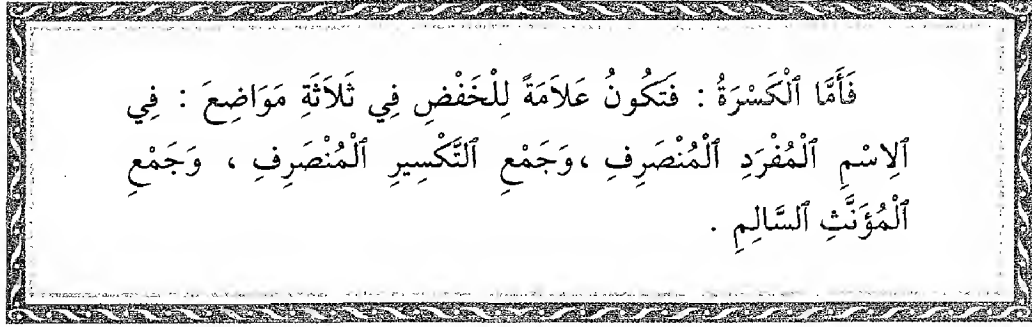 فَأَمَّا ٱلْكَسْرَةُ : فَتَكُونُ عَلاَمَةً لِلْخَفْضِ فِي ثَلاَثَةِ مَوَاضِعَ : فِي
ٱلِاسْمِ ٱلْمُفْرَدِ ٱلْمُنْصَرِفِ ،وَجَمْعِ ٱلتَّكْسِيرِ ٱلْمُنْصَرِفِ ، وَجَمْعِ
ٱلْمُؤَنَّثِ ٱلسَّالِمِ .